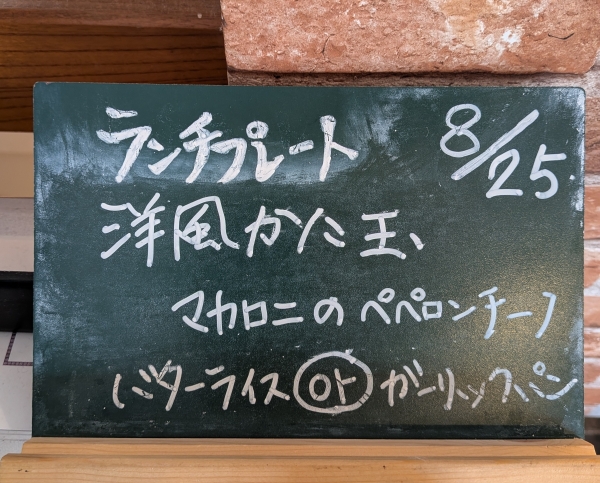 ランチプレート 8/25
洋風かに玉、
マカロニのペペロンチーノ
バターライス or ガーリックパン